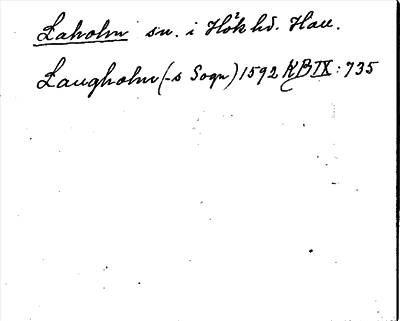 Laholm sn. i Höks hd. Hall.
Laugholm (-s Sogn) 1592 KB IX: 735